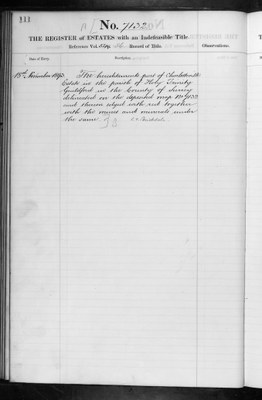 111
No. 71320
THE REGISTER of ESTATES with an Indefeasible Title.
Reference Vol. folio. Record of Title.
Observations.
Date of Entry.
Description
The hereditaments part of
Estate in the parish of Holy Trinity
Guildford in the County of Surrey
delineated on the deposited map No
and thereon edged with red together
with the mines and minerals under
the same